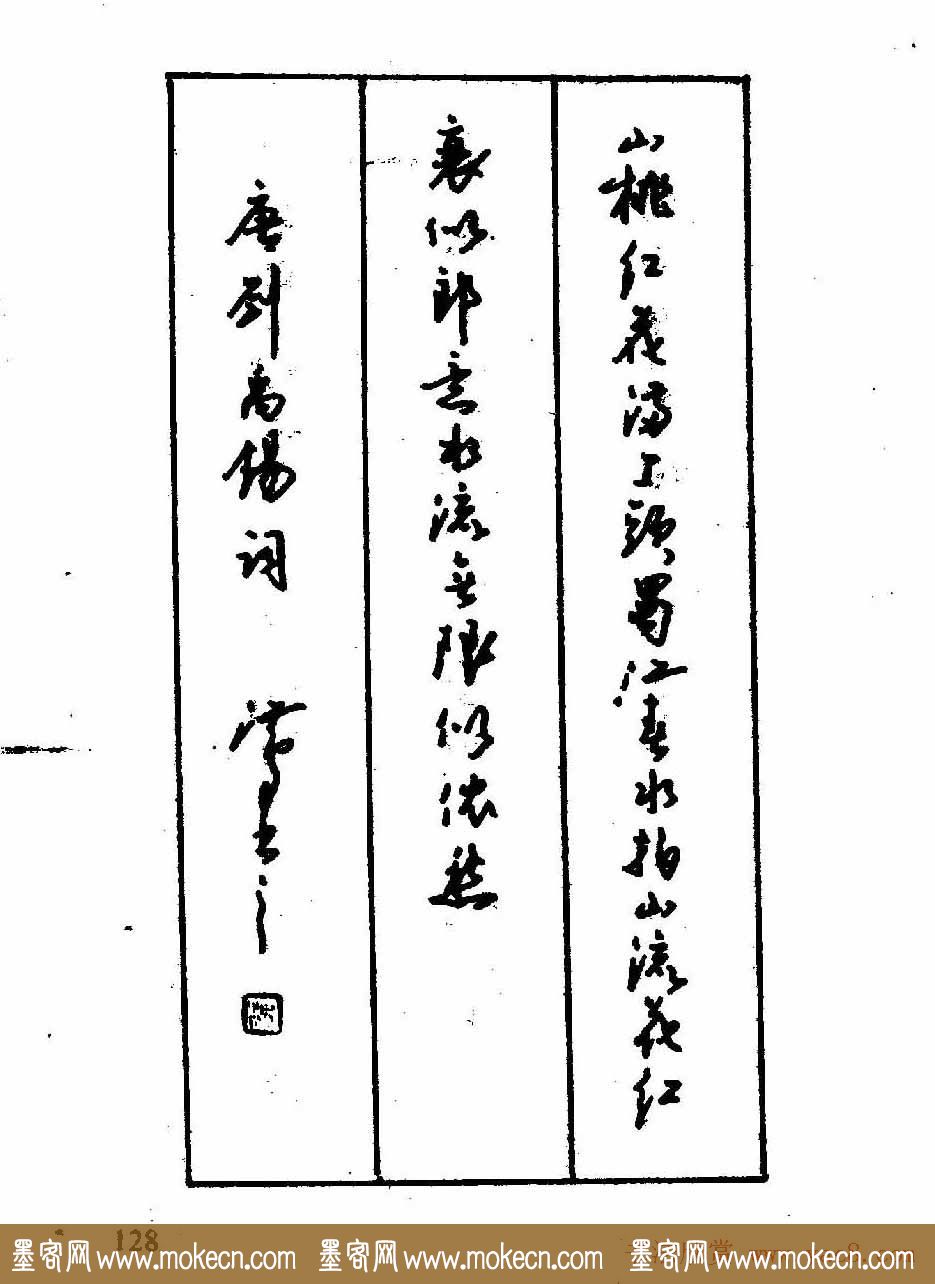 山桃红花満上頭蜀江春水拍山流花红
衰似郎意水流无限似侬愁
唐刘禹锡词 书之
128
墨客网 www.mokecn.com 墨客网 www.mokecn.com 墨客网 www.mokecn.com